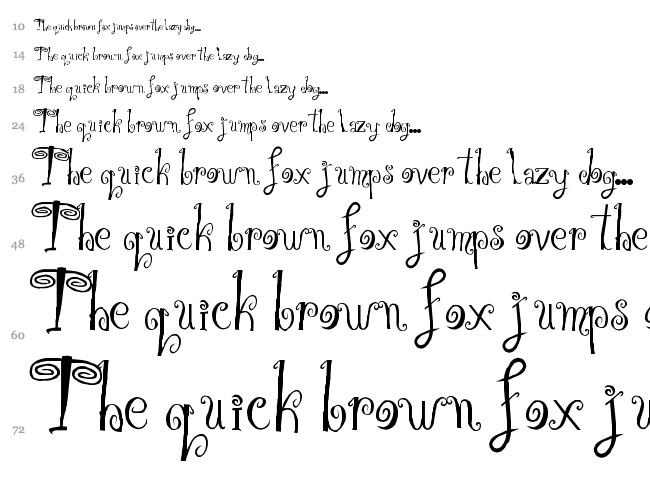 10 The quick brown fox jumps over the lazy dog...
14 The quick brown fox jumps over the lazy dog...
18 The quick brown fox jumps over the lazy dog...
24 The quick brown fox jumps over the lazy dog...
36 The quick brown fox jumps over the lazy dog...
48 The quick brown fox jumps over the
60 The quick brown fox jumps o
72 The quick brown fox ju